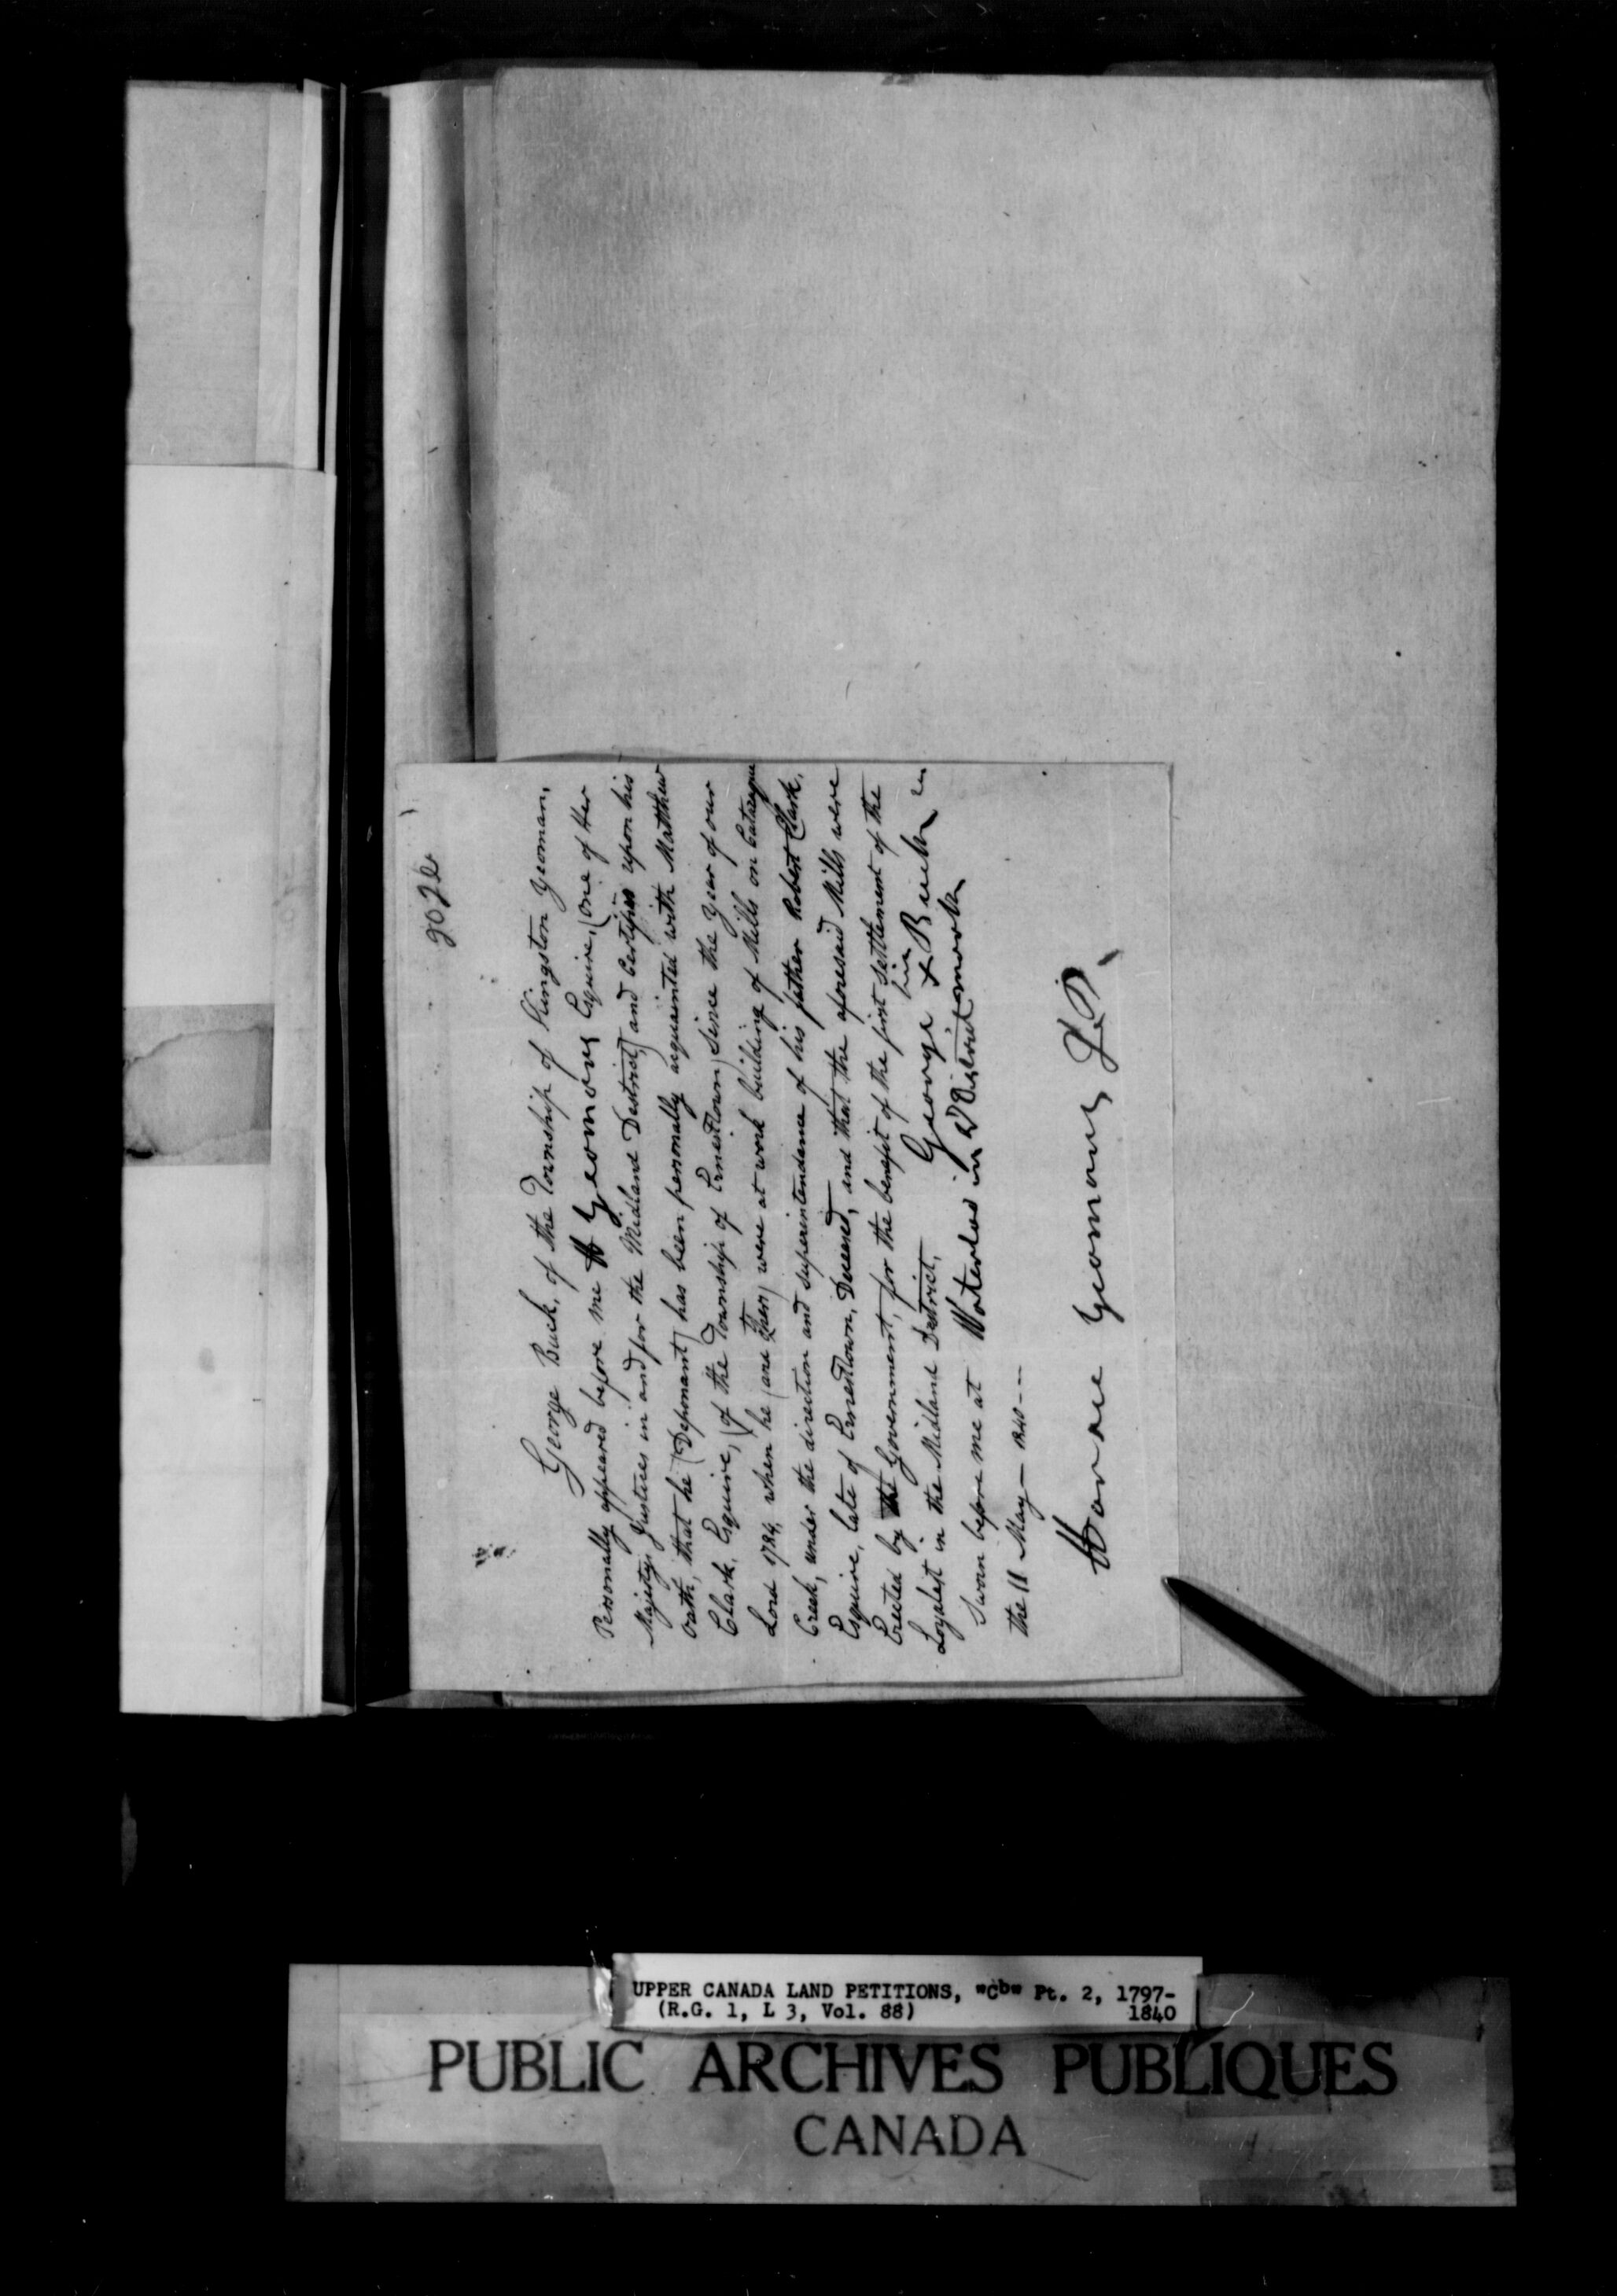 George Buck, of the Township of Kingston Yeoman,
Personally appeared before me H Yeomans Esquire, (one of Her
Majestys Justices in and for the Midland District) and Certifies upon his
Oath, that he (Deponant) has been personally acquainted with Matthew
Clark, Esquire, (of the Township of Ernesttown) since the Year of our
Lord 1784, when he (and then) were at work building of Mills on Cataraque
Creek, under the direction and superintendance of his father Robert Clark,
Esquire, late of Ernesttown, Deceased, and that the aforesaid Mills were
Erected by the Government, for the benefit of the first settlement of the
Loyalist in the Midland District.
his
George X Buck
mark
Sworn before me at Waterloo in District
the 11 May - 1840 --
Horace Yeomans J.P.
UPPER CANADA LAND PETITIONS, "Cb" Pt. 2, 1797-
(R.G. 1, L 3, Vol. 88) 1840
PUBLIC ARCHIVES PUBLIQUES
CANADA